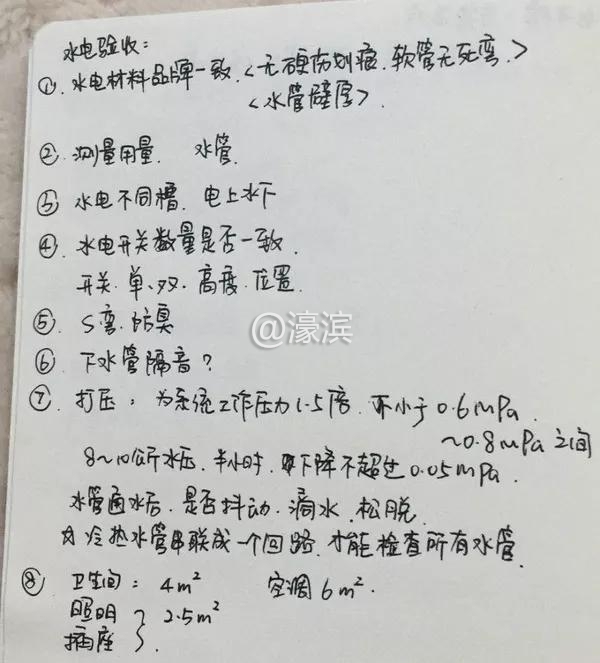 水电验收:
①. 水电材料品牌一致.<无硬伤划痕.软管无死弯.>
<水管壁厚>.
②. 测量用量. 水管.
③ 水电不同槽. 电上水下
④. 水电开关数量是否一致.
开关.单.双.高度.位置.
⑤. S弯.防臭
@濠滨
⑥. 下水管隔音?
⑦. 打压: 为系统工作压力1.5倍. 不小于0.6MPa.
~0.8MPa之间
8~10公斤水压.半小时.下降不超过0.05MPa.
水管通水后.是否抖动.漏水.松脱.
冷热水管串联成一个回路.才能检查所有水管.
⑧. 卫生间: 4m² 空调6m².
照明 } 2.5m²
插座 } .